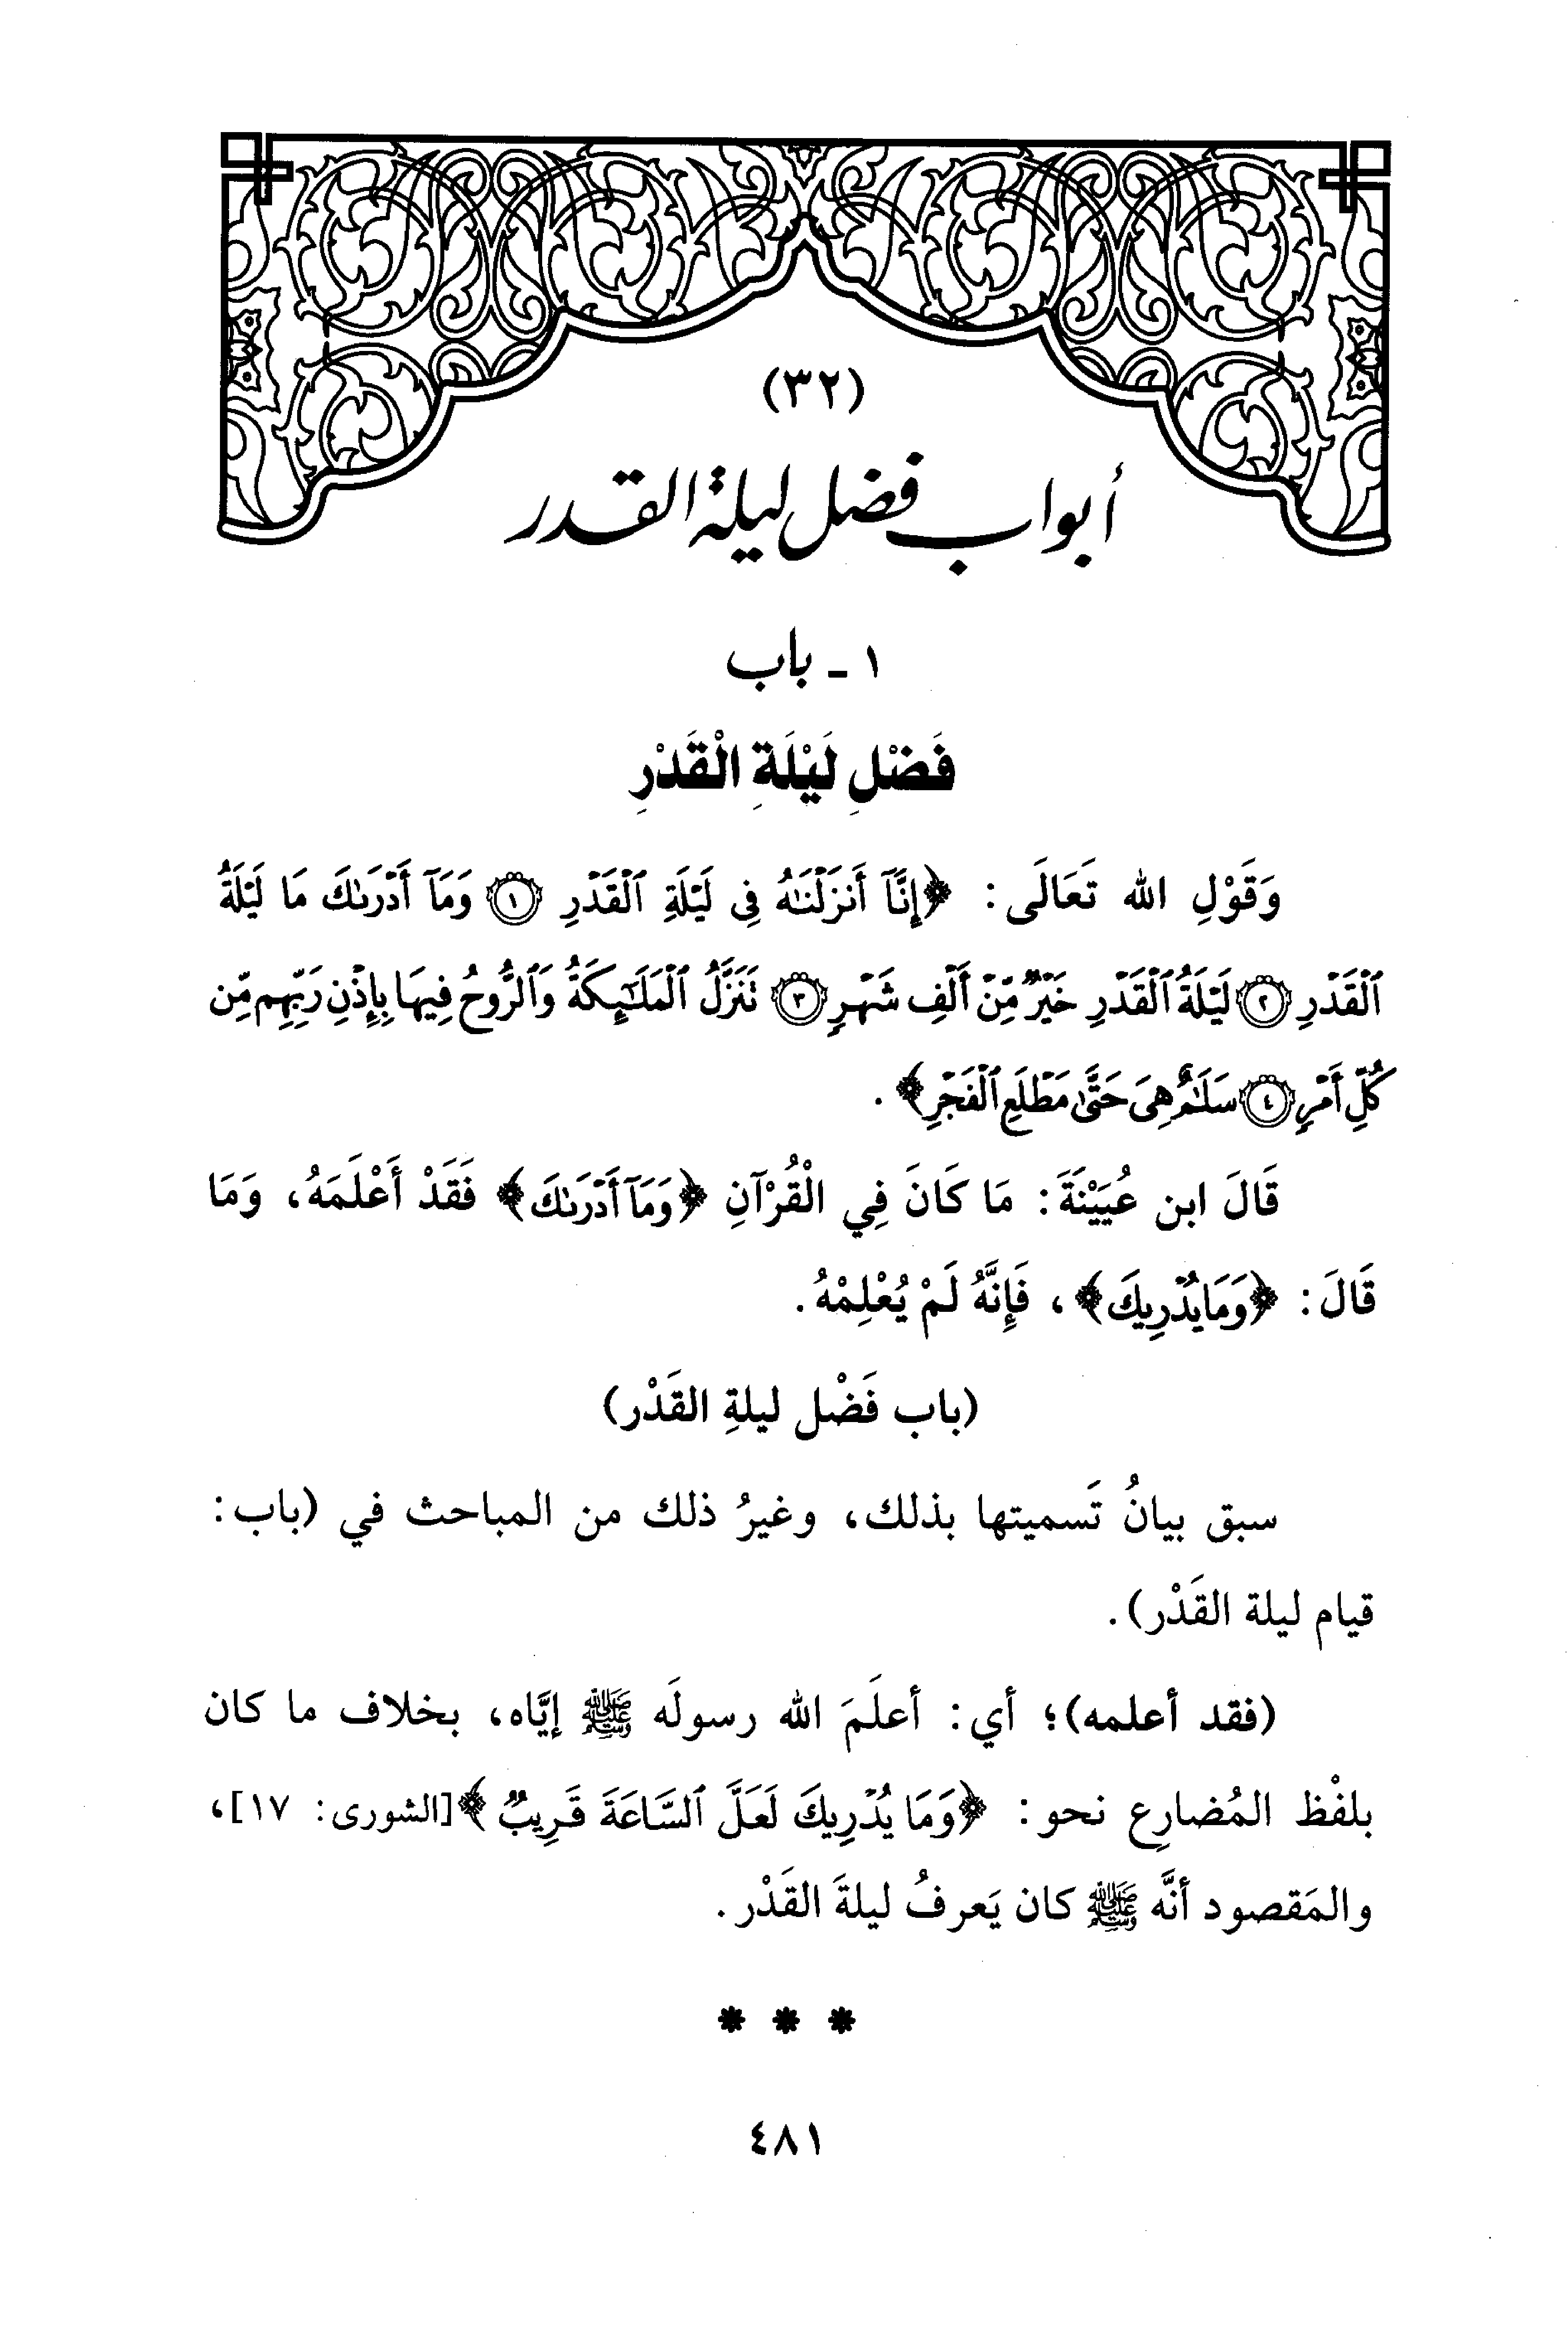 (٣٢)
أبواب فضل ليلة القدر
١ - باب
فَضْلِ لَيْلَةِ الْقَدْرِ
وَقَوْلِ الله تَعَالَى: ﴿إِنَّآ أَنزَلۡنَٰهُ فِى لَيۡلَةِ ٱلۡقَدۡرِ ۝١ وَمَآ أَدۡرَىٰكَ مَا لَيۡلَةُ
ٱلۡقَدۡرِ ۝٢ لَيۡلَةُ ٱلۡقَدۡرِ خَيۡرٌ مِّنۡ أَلۡفِ شَهۡرٍ ۝٣ تَنَزَّلُ ٱلۡمَلَٰٓئِكَةُ وَٱلرُّوحُ فِيهَا بِإِذۡنِ رَبِّهِم مِّن
كُلِّ أَمۡرٍ ۝٤ سَلَٰمٌ هِىَ حَتَّىٰ مَطۡلَعِ ٱلۡفَجۡرِ﴾.
قَالَ ابن عُيَيْنَةَ: مَا كَانَ فِي الْقُرْآنِ ﴿وَمَآ أَدۡرَىٰكَ﴾ فَقَدْ أَعْلَمَهُ، وَمَا
قَالَ: ﴿وَمَا يُدۡرِيكَ﴾، فَإِنَّهُ لَمْ يُعْلِمْهُ.
(باب فَضْل ليلةِ القَدْر)
سبق بيانُ تَسميتها بذلك، وغيرُ ذلك من المباحث في (باب:
قيام ليلة القَدْر).
(فقد أعلمه)؛ أي: أعلَمَ الله رسولَه ﷺ إيَّاه، بخلاف ما كان
بلفْظ المُضارِع نحو: ﴿وَمَا يُدۡرِيكَ لَعَلَّ ٱلسَّاعَةَ قَرِيبٌ﴾[الشورى: ١٧]،
والمَقصود أنَّه ﷺ كان يَعرفُ ليلةَ القَدْر.
* * *
٤٨١